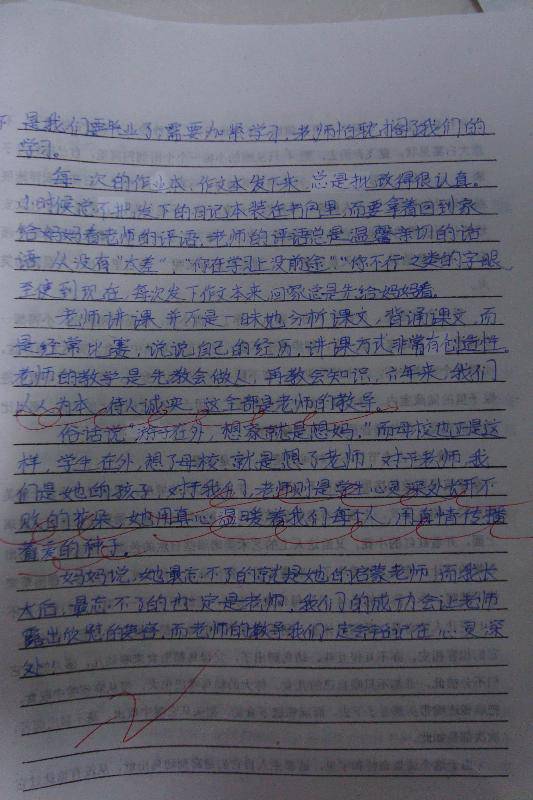 是我们要毕业了,需要加紧学习,老师怕耽搁了我们的
学习。
每一次的作业本、作文本发下来,总是批改得很认真。
小时候总不把发下的日记本装在书包里,而要拿着回到家
给妈妈看老师的评语,老师的评语总是温馨亲切的话
语,从没有“太差”“你在学习上没前途”“你不行”之类的字眼,
至使到现在,每次发下作文本来,回家总是先给妈妈看。
老师讲课并不是一味地分析课文,背诵课文,而
是经常比赛,说说自己的经历,讲课方式非常有创造性。
老师的教学是先教会做人,再教会知识,六年来,我们
以人为本,待人诚实,这全都是老师的教导。
俗话说“游子在外,想家就是想妈。”而母校也正是这
样,学生在外,想了母校就是想了老师,对于老师,我
们是她的孩子,对于我们,老师则是学生心灵深处开不
败的花朵,她用真心温暖着我们每个人,用真情传播
着爱的种子。
妈妈说,她最忘不了的就是她的启蒙老师,而我长
大后,最忘不了的也一定是老师,我们的成功会让老师
露出欣慰的笑容,而老师的教导我们一定会牢记在心灵深
处!